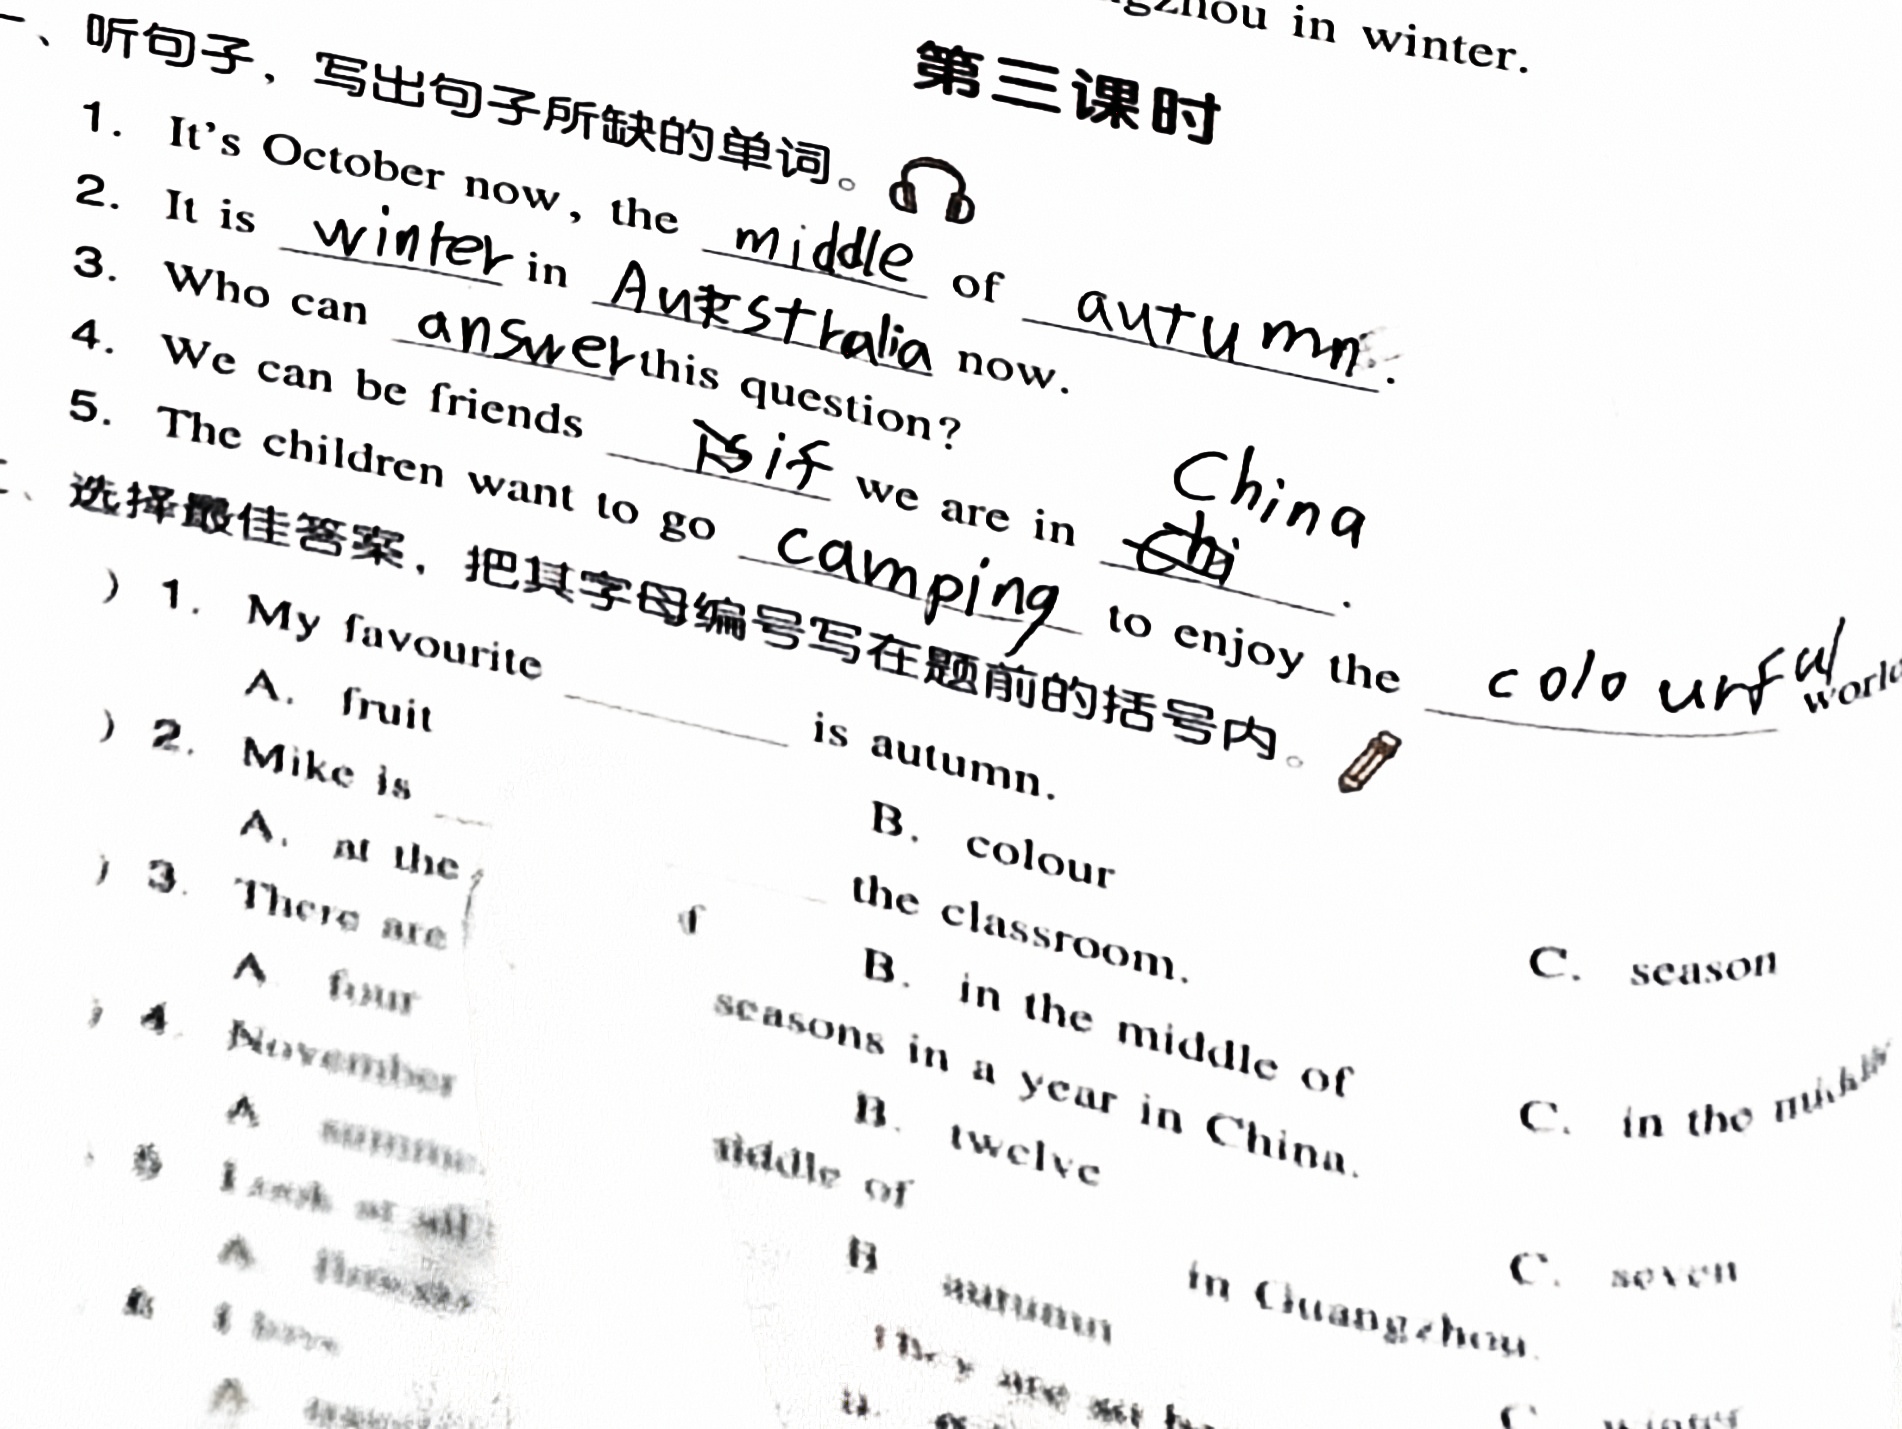 in winter.
第三课时
一、听句子，写出句子所缺的单词。
1. It's October now, the middle of autumn.
2. It is winter in Australia now.
3. Who can answer this question?
4. We can be friends if we are in China.
5. The children want to go camping to enjoy the colourful world
选择最佳答案，把其字母编号写在题前的括号内。
) 1. My favourite ______ is autumn.
A. fruit B. colour C. season
) 2. Mike is ______ the classroom.
A. at the B. in the middle of C. in the middle
) 3. There are seasons in a year in China.
A four B. twelve C. seven
) 4. November middle of in Guangzhou.
A B autumn C winter
5 I
A
I have
They are
A